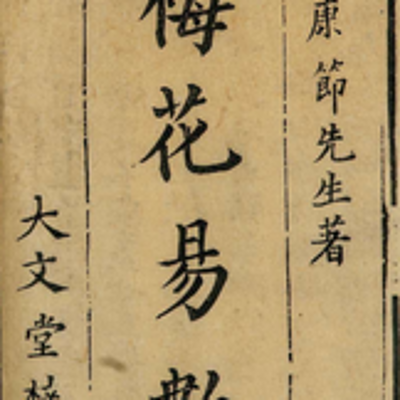 康節先生著
梅花易數
大文堂